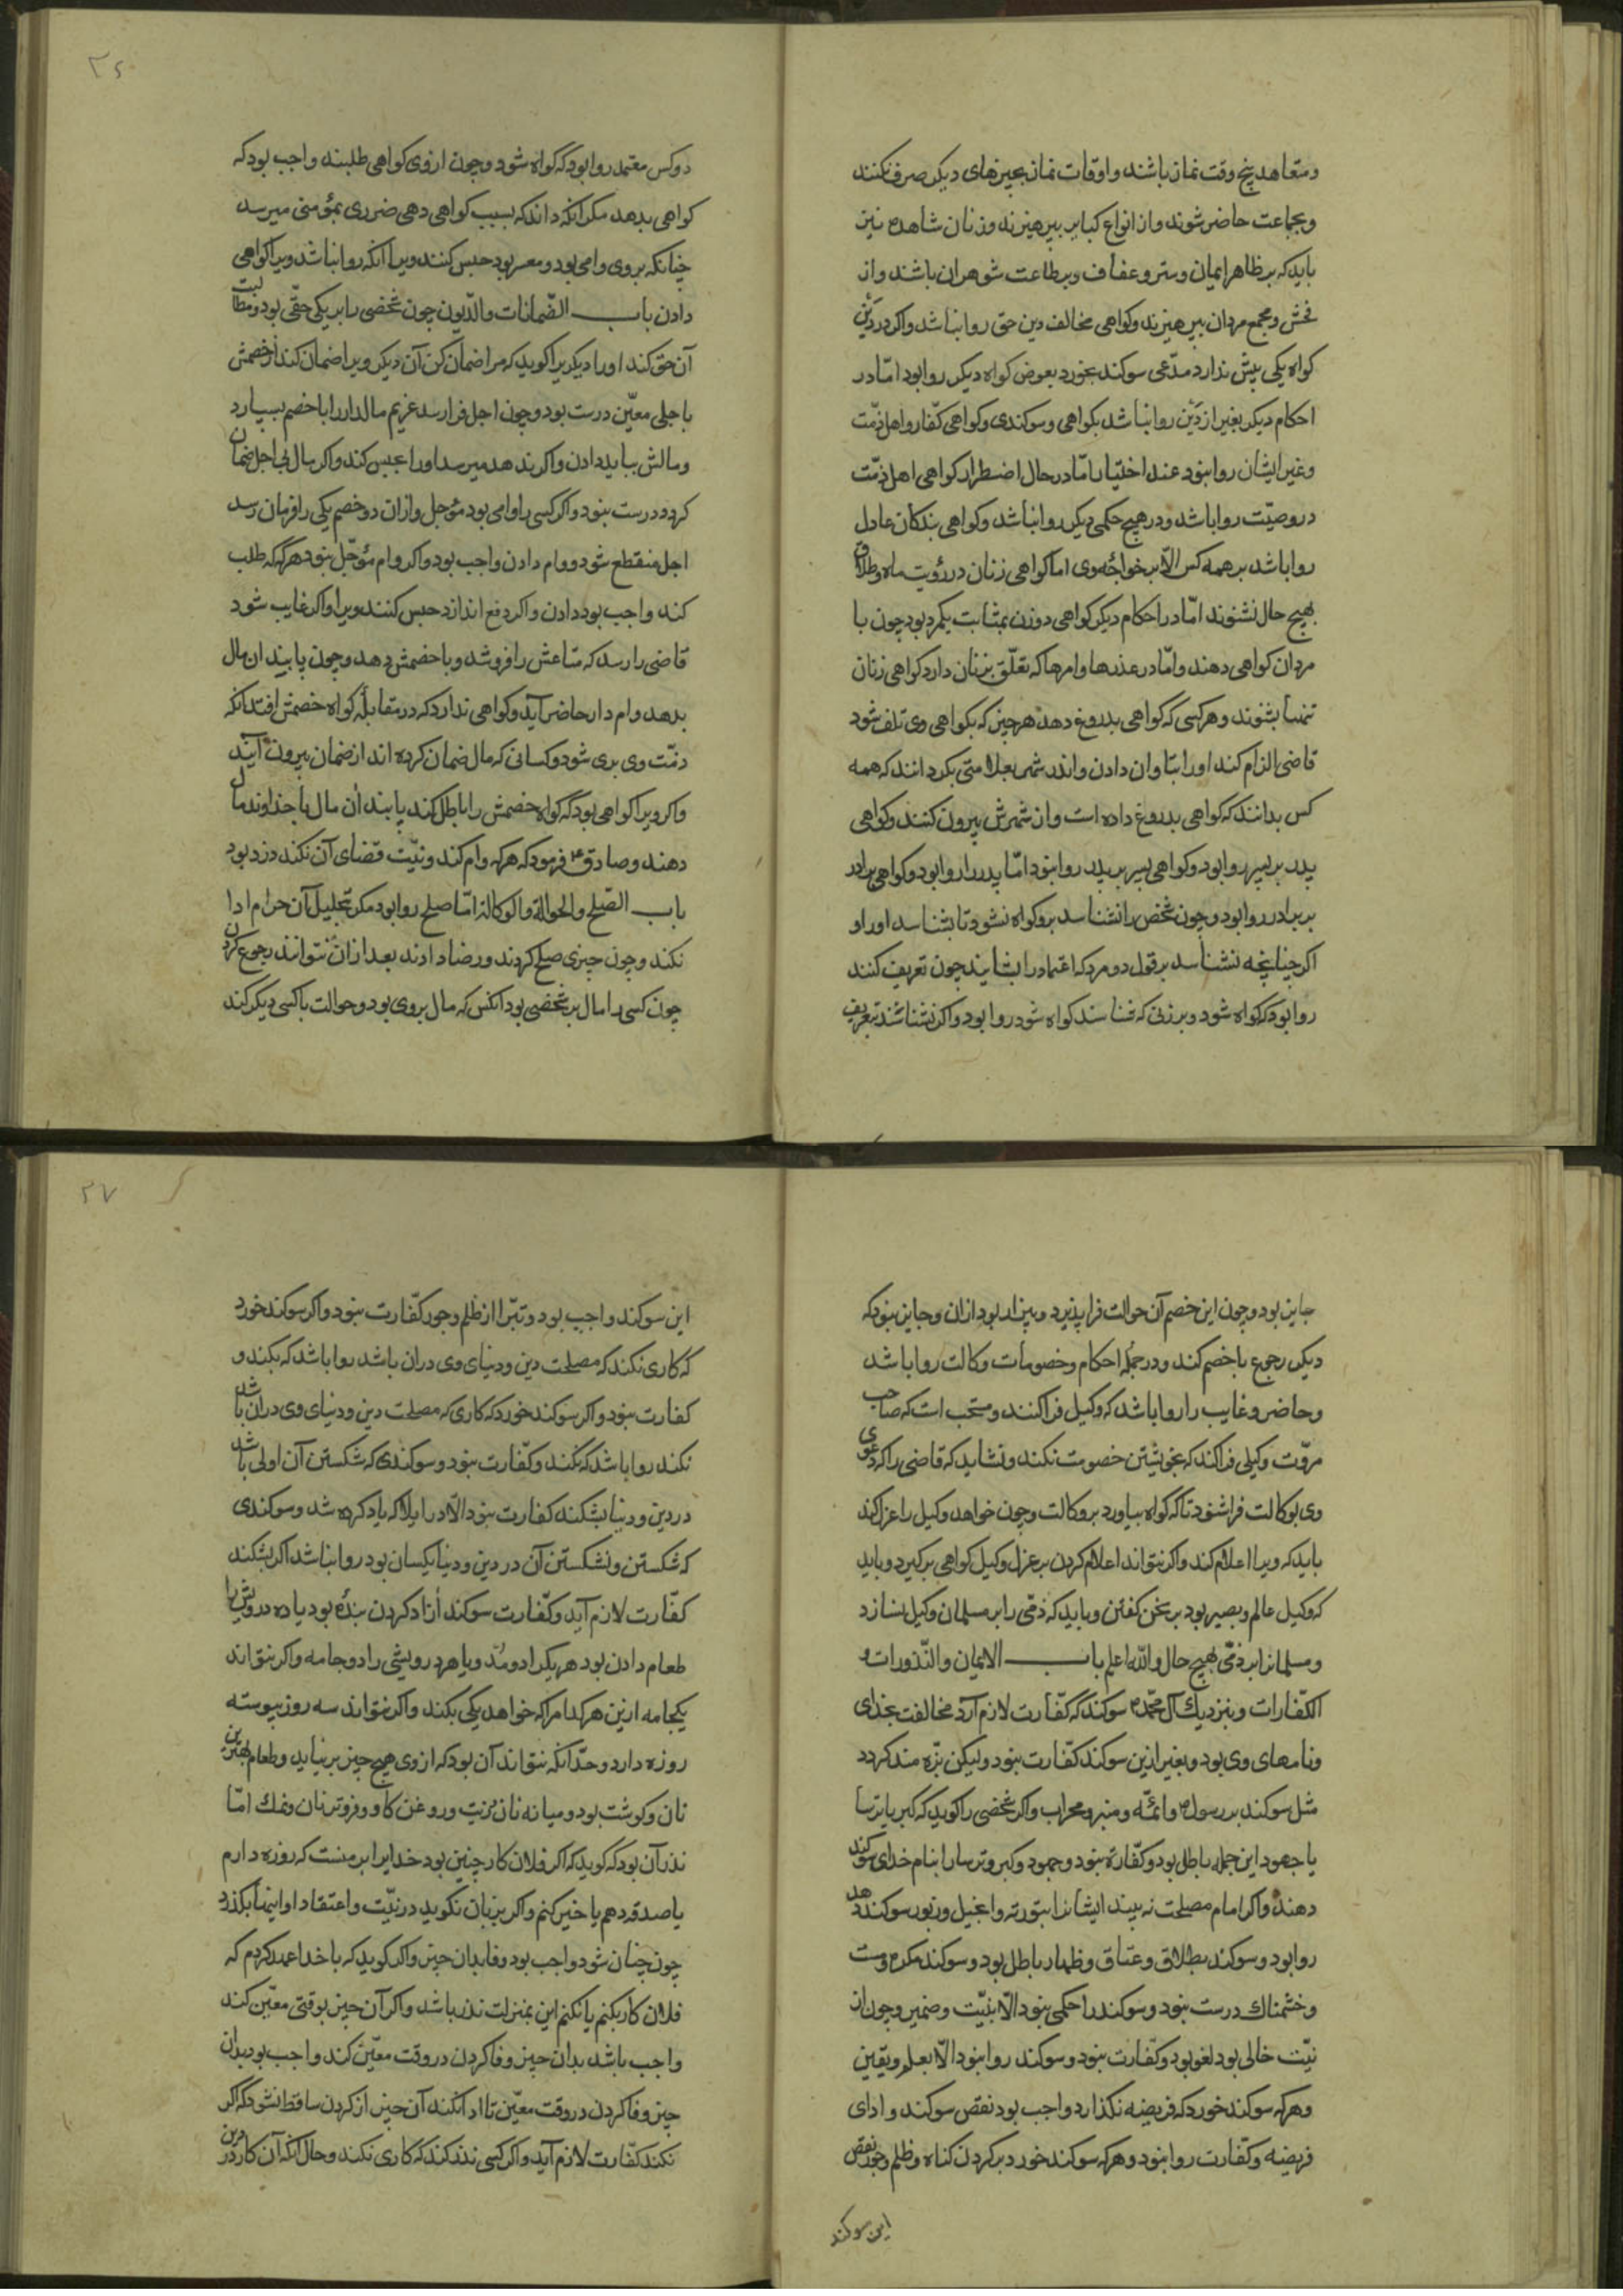 و متعاهد پنج وقت نماز باشند و اوقات نماز بچیزهای دیکر صرف نکنند
و بجماعت حاضر شوند و از انواع کبایر بپرهیزند و زنان شاهده نیز
باید که بر ظاهر ایمان و ستر و عفاف و بر طاعت شوهران باشند و از
فحش و مجمع مردان بپرهیزند و کواهی مخالف دین حق روا نباشد و اکر در دَیْن
کواه یکی بیش ندارد مدّعی سوکند بخورد بعوض کواه دیکر روا بود امّا در
احکام دیکر بغیر از دَیْن روا نباشد بکواهی و سوکندی و کواهی کفّار و اهل ذمّت
و غیر ایشان روا نبود عند اختیار امّا در حال اضطرار کواهی اهل ذمّت
در وصیّت روا باشد و در هیچ حکمی دیکر روا نباشد و کواهی بندکان عادل
روا باشد بر همه کس الّا بر خواجهٔ وی اما کواهی زنان در رؤیت ماه و طلاق
بهیچ حال نشنوند امّا در احکام دیکر کواهی دو زن بمثابت یکمرد بود چون با
مردان کواهی دهند و امّا در عذرها و امرها که تعلّق بزنان دارد کواهی زنان
تنها بشنوند و هر کسی که کواهی بدروغ دهد هر چیز که بکواهی وی تلف شود
قاضی الزام کند او را بتاوان دادن و اندر شهر بعلامتی بکردانند که همه
کس بدانند که کواهی بدروغ داده است و از شهرش بیرون کنند و کواهی
پدر بر پسر روا بود و کواهی پسر بر پدر روا نبود امّا پدر را روا بود و کواهی برادر
بر برادر روا بود و چون شخص را نشناسد برو کواه نشود تا بشناسد او را و
اکر چنانچه نشناسد بر قول دو مرد که اعتماد را شایند چون تعریف کنند
روا بود که کواه شود و بر زنی که شناسند کواه شود روا بود و اکر نشناشند بتعریف
۳۶
دو کس معتمد روا بود که کواه شود و چون از وی کواهی طلبند واجب بود که
کواهی بدهد مکر آنکه داند که بسبب کواهی دهی ضرری بمؤمنی میرسد
چنانکه بروی وامی بود و معسر بود حبس کنند ویرا آنکه روا نباشد ویرا کواهی
دادن باب الضّمانات والدّیون چون شخصی را بر یکی حقّی بود و مطالبت
آن حق کند او را دیکر یرا کوید که مرا ضمان کن آن دیکر ویرا ضمان کند از خصمش
باجلی معیّن درست بود و چون اجل فرا رسد غریم مالدار را با خصم بسپارد
و مالش بباید دادن و اکر ندهد میرسد او را حبس کند و اکر مال بی اجل ضمان
کردد درست نبود و اکر کسی را وامی بود مؤجل و از ان دو خصم یکی را فرمان رسد
اجل منقطع شود و وام دادن واجب بود و اکر وام مؤجّل نبود هر که که طلب
کند واجب بود دادن و اکر دفع اندازد حبس کنند ویرا و اکر غایب شود
قاضی را رسد که متاعش را فروشد و با خصمش دهد و چون پابیند ان مال
بدهد وام دار حاضر آید و کواهی ندارد که در مقابلهٔ کواه خصمش افتد آنکه
ذمّت وی بری شود و کسانی که مال ضمان کرده اند از ضمان بیرون آیند
و اکر ویرا کواهی بود که کواه خصمش را باطل کند پابند آن مال با خداوند مال
دهند و صادق ع فرمود که هر که وام کند و نیّت قضای آن نکند دزد بود
باب الصّلح والحوالة والوکالة امّا صلح روا بود مکر تحلیل آن حرام ادا
نکند و چون چیزی صلح کردند و رضا دادند بعد از ان نتوانند رجوع کردن
چون کسی را مال بر شخصی بود آنکس که مال بروی بود و حوالت با کسی دیکر کند
جایز بود و چون این خصم آن حوالت فرا پذیرد و بیزار بود از ان و جایز نبود که
دیکر رجوع با خصم کند و در جملهٔ احکام و خصومات وکالت روا باشد
و حاضر و غایب را روا باشد که وکیل فرا کنند و مستحب است که صاحب
مروّت وکیلی فرا کند که بخویشتن خصومت نکند و نشاید که قاضی را که دعوی
وی بوکالت فرا شنود تا که کواه بیاورد بر وکالت و چون خواهد وکیل را عزل کند
باید که ویرا اعلام کند و اکر نتواند اعلام کردن بر عزل وکیل کواهی برکیرد و باید
که وکیل عالم و بصیر بود بر سخن کفتن و باید که ذمّی را بر مسلمان وکیل نسازد
و مسلمانرا بر ذمّی بهیچ حال والله اعلم باب الایمان والنّذورات و
الکفّارات و بنزدیك آل محمّد ع سوکند که کفّارت لازم آرد مخالفت بخدای
و نامهای وی بود و بغیر ازین سوکند کفّارت نبود و لیکن بزه مند کردد
مثل سوکند برسول ص و ائمّه و منبر و محراب و اکر شخصی را کوید که کبر یا ترسا
یا جهود این جمله باطل بود و کفّارة نبود و جهود و کبر و ترسا را بنام خدای سوکند
دهند و اکر امام مصلحت نه بیند ایشانرا بتورته و انجیل و زبور سوکند دهد
روا بود و سوکند بطلاق و عتاق و ظهار باطل بود و سوکند مکره و مست
و خشمناك درست نبود و سوکند را حکمی نبود الّا بنیّت و ضمیر و چون از
نیّت خالی بود لغو بود و کفّارت نبود و سوکند روا نبود الّا بعلم و یقین
و هر که سوکند خورد که فریضه نکذارد واجب بود نقض سوکند و ادای
فریضه و کفّارت روا نبود و هر که سوکند خورد بر کردن کناه و ظلم و جور نقض
این سوکند
۳۷
این سوکند واجب بود و تبرّا از ظلم و جور کفّارت نبود و اکر سوکند خورد
که کاری نکند که مصلحت دین و دنیای وی دران باشد روا باشد که بکند و
کفارت نبود و اکر سوکند خورد که کاری که مصلحت دین و دنیای وی دران باشد
نکند روا باشد که نکند و کفّارت نبود و سوکندی که شکستن آن اولی باشد
در دین و دنیا بشکند کفارت نبود الّا در ایلا که یاد کرده شد و سوکندی
که شکستن و نشکستن آن در دین و دنیا یکسان بود روا نباشد اکر بشکند
کفّارت لازم آید و کفّارت سوکند آزاد کردن بندهٔ بود یا ده درویش را
طعام دادن بود هر یکرا دو مُدّ و یا هر درویشی را دو جامه و اکر نتواند
یکجامه ازین هر کدام را که خواهد یکی بکند و اکر نتواند سه روز پیوسته
روزه دارد و حدّ آنکه نتواند آن بود که از وی هیچ چیز بر نیاید و طعام بهترین
نان و کوشت بود و میانه نان و زیت و روغن کاو و فروتر نان و نمك امّا
نذر آن بود که کوید که اکر فلان کار چنین بود خدایرا بر منست که روزه دارم
یا صدقه دهم یا خیر کنم و اکر بزبان نکوید در نیّت و اعتقاد او اینها بکذرد
چون چنان شود واجب بود وفا بدان چیز و اکر کوید که با خدا عهد کردم که
فلان کار بکنم یا نکنم این بمنزلت نذر باشد و اکر آن چیز بوقتی معیّن کند
واجب باشد بدان چیز وفا کردن در وقت معیّن کند واجب بود بدان
چیز وفا کردن در وقت معیّن تا ادا نکند آن چیز از کردن ساقط نشود که اکر
نکند کفّارت لازم آید و اکر کسی نذر کند که کاری نکند و حال آنکه آن کار در دین